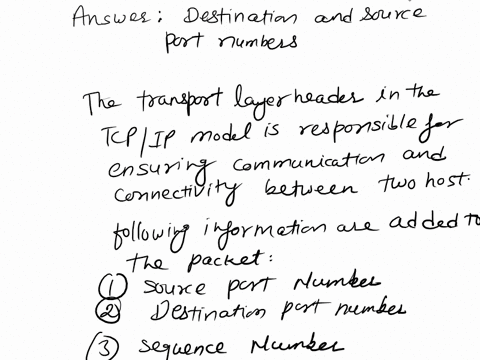 Answer: Destination and source
port numbers
The transport layer header in the
TCP/IP model is responsible for
ensuring communication and
connectivity between two host.
following information are added to
the packet:
① source port Number
② Destination port number
③ sequence Number